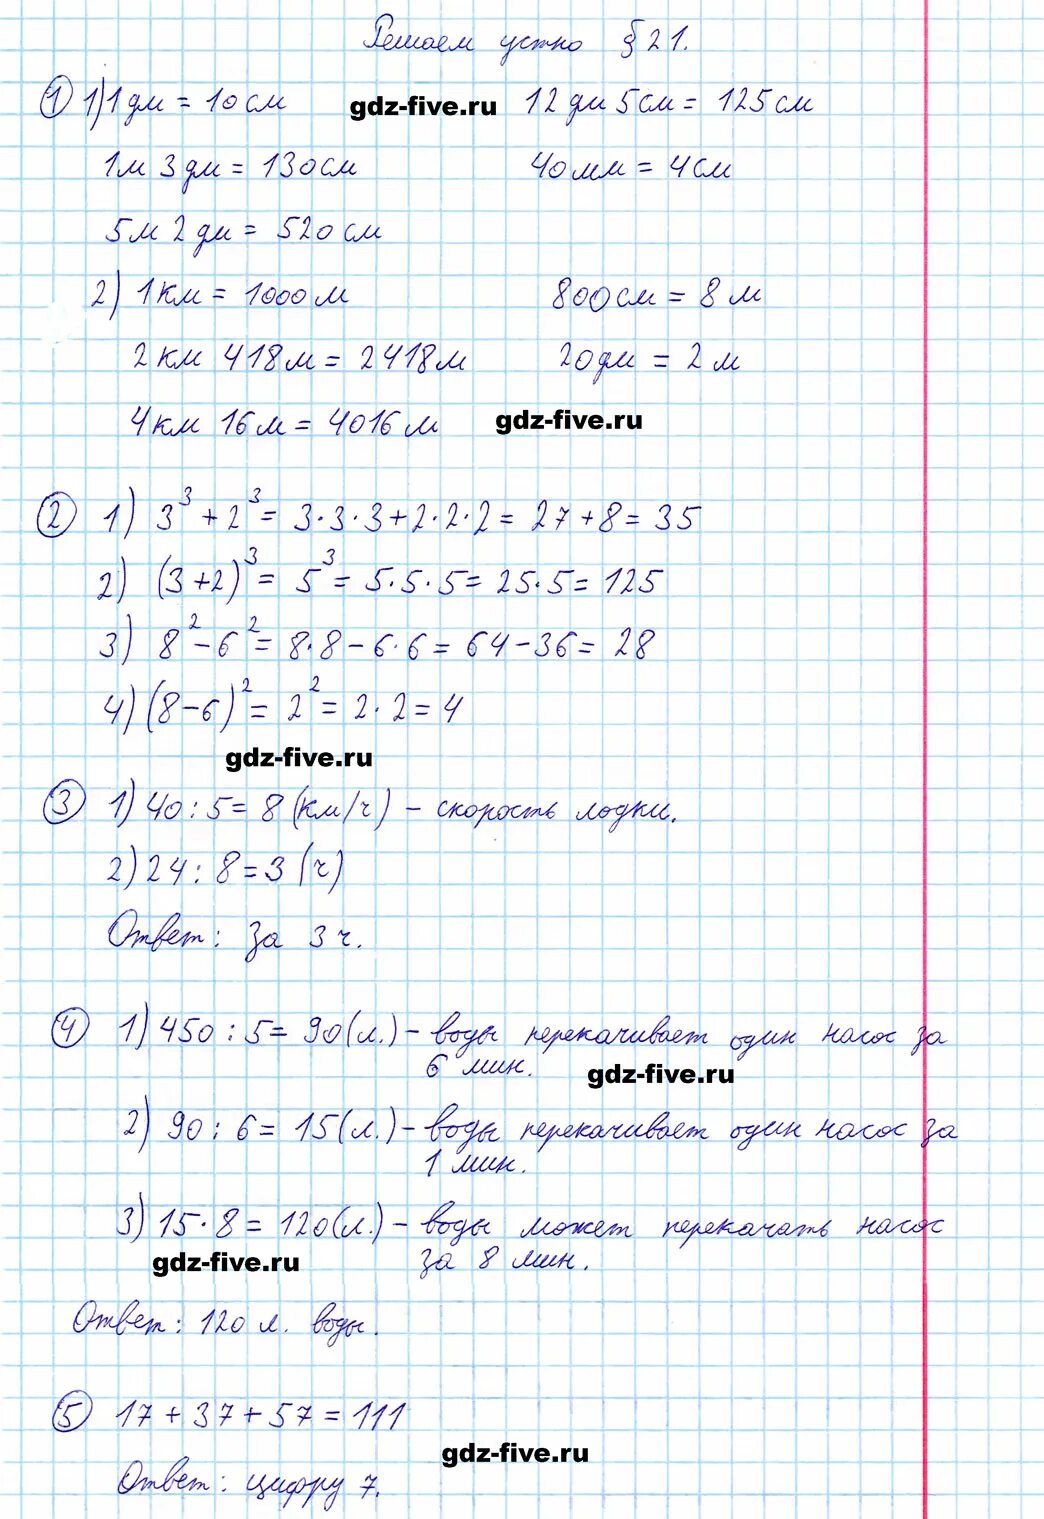 Решаем устно § 21.
① 1) 1 дм = 10 см gdz-five.ru 12 дм 5 см = 125 см
1 м 3 дм = 130 см 40 мм = 4 см
5 м 2 дм = 520 см
2) 1 км = 1000 м 800 см = 8 м
2 км 418 м = 2418 м 20 дм = 2 м
4 км 16 м = 4016 м gdz-five.ru
② 1) 3³ + 2³ = 3·3·3 + 2·2·2 = 27 + 8 = 35
2) (3+2)³ = 5³ = 5·5·5 = 25·5 = 125
3) 8² - 6² = 8·8 - 6·6 = 64 - 36 = 28
4) (8-6)² = 2² = 2·2 = 4
gdz-five.ru
③ 1) 40 : 5 = 8 (км/ч) - скорость лодки.
2) 24 : 8 = 3 (ч)
Ответ: за 3 ч.
④ 1) 450 : 5 = 90 (л.) - воды перекачивает один насос за
6 мин. gdz-five.ru
2) 90 : 6 = 15 (л.) - воды перекачивает один насос за
1 мин.
3) 15·8 = 120 (л.) - воды может перекачать насос
gdz-five.ru за 8 мин.
Ответ: 120 л. воды.
⑤ 17 + 37 + 57 = 111
gdz-five.ru
Ответ: цифру 7.